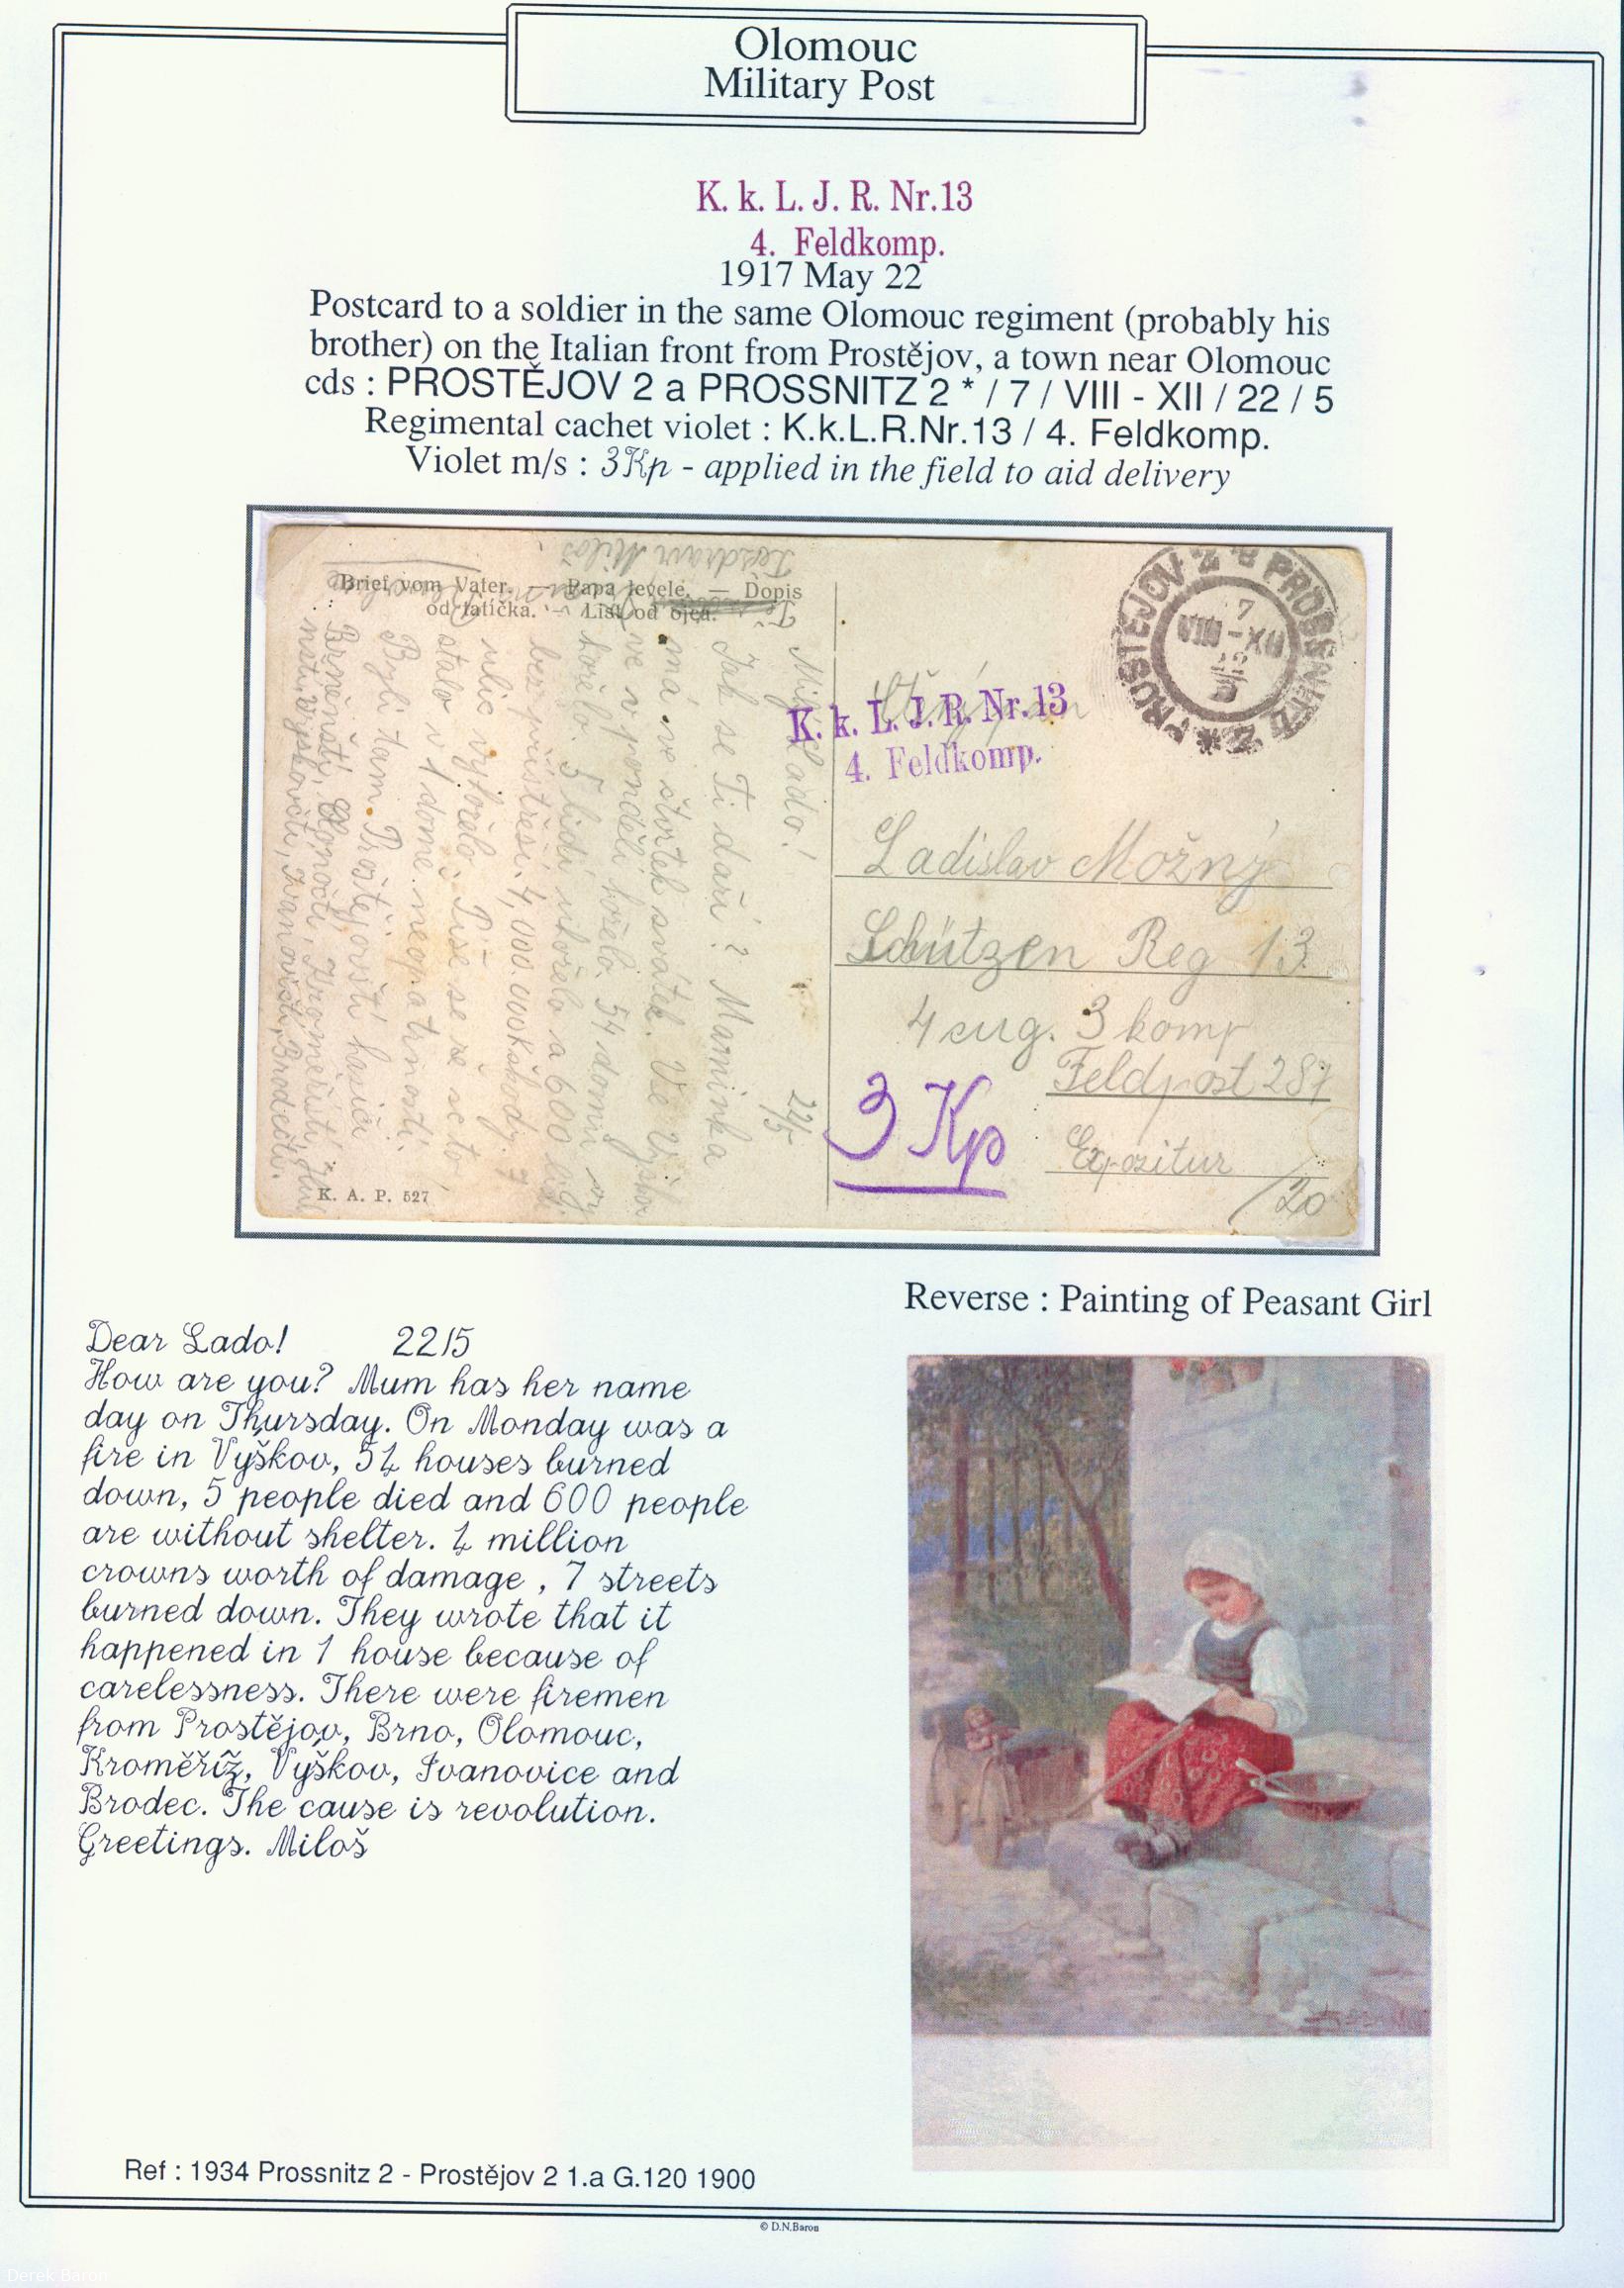 Olomouc
Military Post
K. k. L. J. R. Nr.13
4. Feldkomp.
1917 May 22
Postcard to a soldier in the same Olomouc regiment (probably his
brother) on the Italian front from Prostějov, a town near Olomouc
cds : PROSTĚJOV 2 a PROSSNITZ 2 * / 7 / VIII - XII / 22 / 5
Regimental cachet violet : K.k.L.R.Nr.13 / 4. Feldkomp.
Violet m/s : 3Kp - applied in the field to aid delivery
Brief vom Vater. — Papa levele. — Dopis
od tatíčka. — List od ojca.
Pozdrav Miloš
Milý Lado!
22/5
Jak se Ti daří? Maminka
má ve čtvrtek svátek. Ve Vyškov
ve v pondělí hořelo. 54 domů vy
hořelo. 5 lidí uhořelo a 600 lidí
bez přístřeší. 4,000.000K škody. 7
ulic vyhořelo. Píše se že se to
stalo v 1 domě neopatrností.
Byli tam Prostějovští hasiči
K. A. P. 527
PROSTĚJOV 2 a PROSSNITZ 2 *
7
VIII-XII
22
5
K. k. L. J. R. Nr.13
4. Feldkomp.
Ladislav Možný
Schützen Reg 13
4 3 komp
Feldpost 287
3 Kp
Expozitur
/20
Reverse : Painting of Peasant Girl
Dear Lado! 22/5
How are you? Mum has her name
day on Thursday. On Monday was a
fire in Vyškov, 54 houses burned
down, 5 people died and 600 people
are without shelter. 4 million
crowns worth of damage , 7 streets
burned down. They wrote that it
happened in 1 house because of
carelessness. There were firemen
from Prostějov, Brno, Olomouc,
Kroměříž, Vyškov, Ivanovice and
Brodec. The cause is revolution.
Greetings. Miloš
Ref : 1934 Prossnitz 2 - Prostějov 2 1.a G.120 1900
© D.N.Baron
Derek Baron